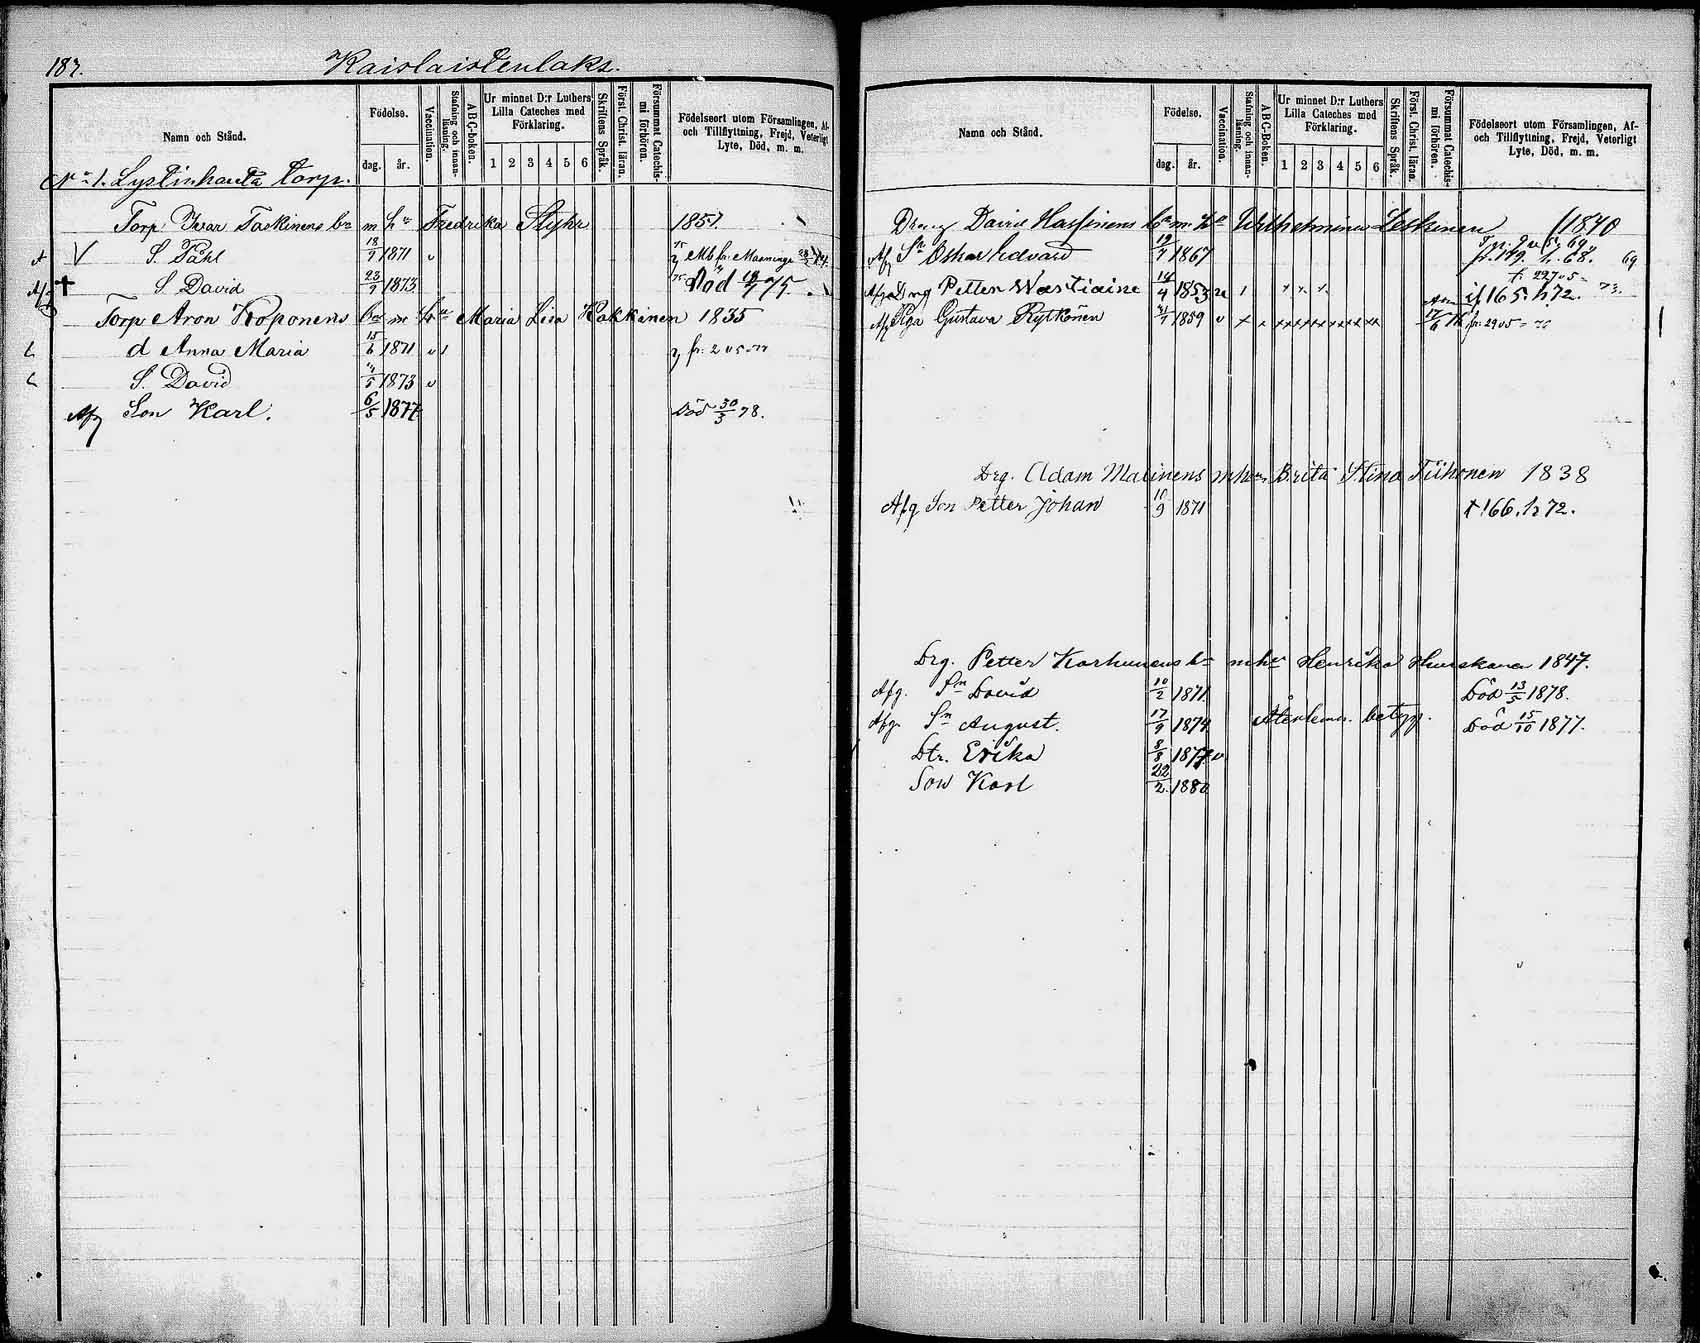 187.
Kaislaistenlaks.
Namn och Stånd.
Födelse.
dag. år.
Vaccination.
Stafning och innan-läsning.
ABC-boken.
Ur minnet D:r Luthers Lilla Cateches med Förklaring.
1 2 3 4 5 6
Skriftens Språk.
Först. Christ. läran.
Försummat Catechis-mi förhören.
Födelseort utom Församlingen, Af- och Tillflyttning, Frejd, Veterligt Lyte, Död, m. m.
No 1. Lystinhauta torp.
Torp. Ivar Taskinens bn m hu Fredrika Styhr 1851.
S. Påhl 18/7 1871 v
Afg † S. David 23/9 1873 Död 75.
Torp Aron Koponens bn m hu Maria Lisa Kokkinen 1835
d Anna Maria 15/6 1871 v 1 fr: 2
S. David 1873 v
Afg Son Karl. 6/5 1877 Död 30/3 78.
Namn och Stånd.
Födelse.
dag. år.
Vaccination.
Stafning och innan-läsning.
ABC-boken.
Ur minnet D:r Luthers Lilla Cateches med Förklaring.
1 2 3 4 5 6
Skriftens Språk.
Först. Christ. läran.
Försummat Catechis-mi förhören.
Födelseort utom Församlingen, Af- och Tillflyttning, Frejd, Veterligt Lyte, Död, m. m.
Dreng David Hassinens bn m. hu Wilhelmina Leskinen 1840
Afg Sn Oskar Edvard 19/7 1867
Drng Petter Wæstiaine 14/4 1853 165. h 72.
Afg Pga Gustava Rytkönen 1859 v
Drg. Adam Matinens m hu Brita Stina Tiihonen 1838
Afg Son Petter Johan 10/9 1871 166. h 72.
Drg. Petter Karhunens bn m hu Henrika Huuskonen 1847.
Afg. Sn David 10/2 1871 Död 13/5 1878.
Afg. Sn August. 17/9 1874. betyg. Död 15/10 1877.
Dtr. Erika 8/8 1877 v
Son Karl 22/2 1880